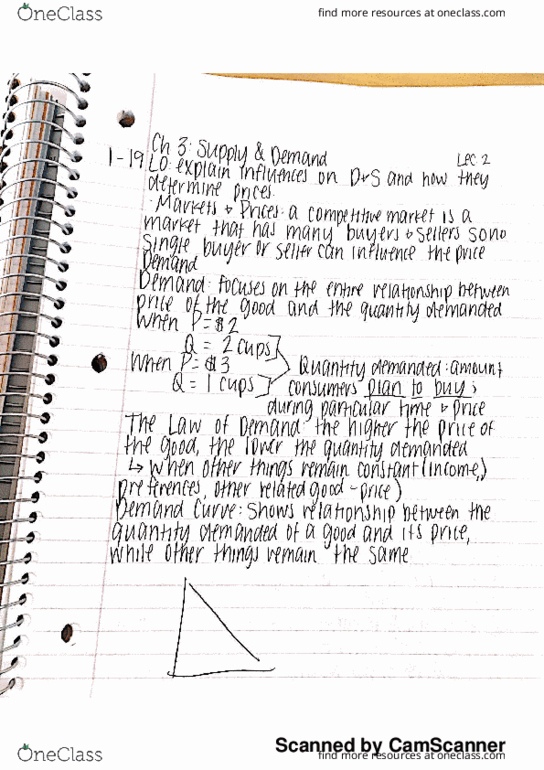 OneClass
find more resources at oneclass.com
Ch 3: Supply & Demand
1-19
Lec. 2
LO: explain influences on D+S and how they
determine prices.
· Markets & Prices: a competitive market is a
market that has many buyers & sellers so no
single buyer or seller can influence the price
Demand
Demand: focuses on the entire relationship between
price of the good and the quantity demanded
When P=$2
Q = 2 cups
When P=$3
Q = 1 cups
Quantity demanded: amount
consumers plan to buy
during particular time & price
The Law of Demand: the higher the price of
the good, the lower the quantity demanded
↳ when other things remain constant (income,
preferences, other related good - price)
Demand Curve: Shows relationship between the
quantity demanded of a good and its price,
while other things remain the same
Scanned by CamScanner
OneClass
find more resources at oneclass.com